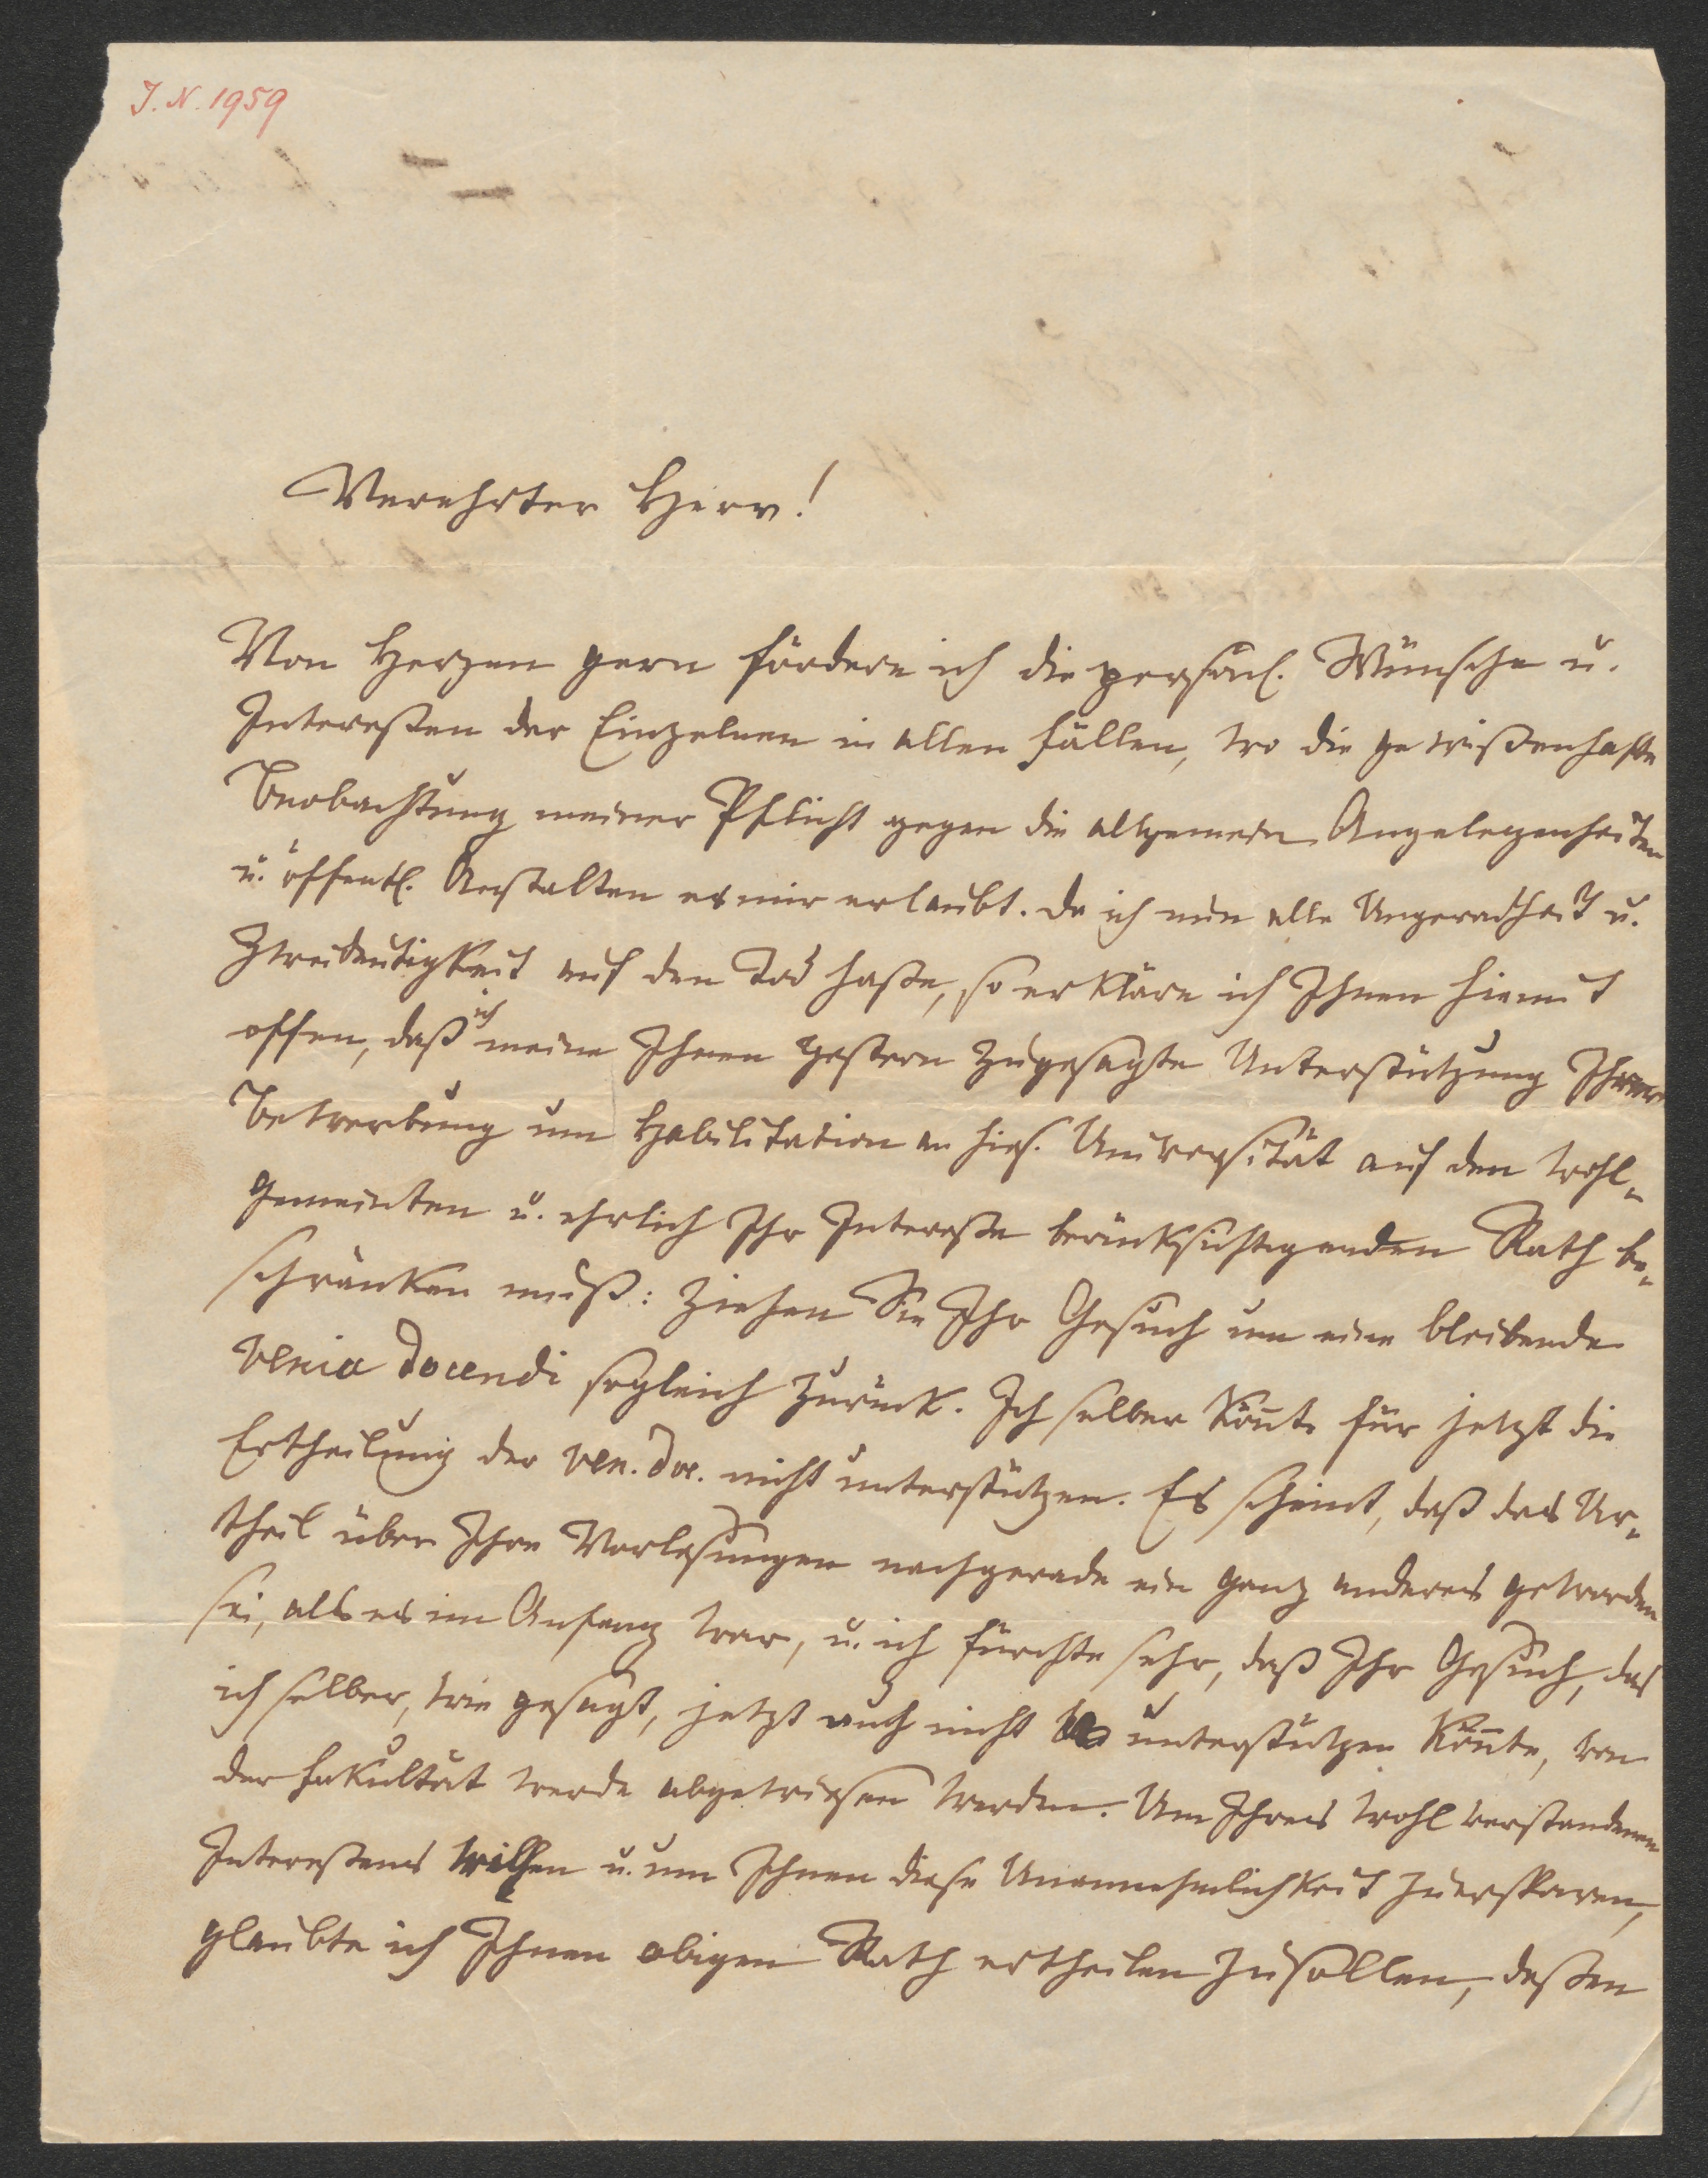 J. N. 1959
Verehrter Herr!
Von Herzen gern fördere ich die persönl. Wünsche u.
Intereßen der Einzelnen in allen Fällen, wo die gewißenhafte
Beobachtung meiner Pflicht gegen die allgemein. Angelegenheiten
u. öffentl. Anstalten es mir erlaubt. Da ich nun alle Ungeradheit u.
Zweideutigkeit auf den Tod haße, so erkläre ich Ihnen hiemit
offen, daß ich meine Ihnen gestern zugesagte Unterstützung Ihrer
Bewerbung um Habilitation an hies. Universität auf den wohl-
gemeinten u. ehrlich Ihr Intereße berücksichtigenden Rath be-
schränken muß: Ziehen Sie Ihr Gesuch um eine bleibende
venia docendi sogleich zurück. Ich selber könnte für jetzt die
Ertheilung der ven. doc. nicht unterstützen. Es scheint, daß das Ur-
theil über Ihre Vorlesungen nachgerade ein ganz anderes geworden
sei, als es im Anfang war, u. ich fürchte sehr, daß Ihr Gesuch, das
ich selber, wie gesagt, jetzt auch nicht unterstützen könnte, von
der Fakultät werde abgewiesen werden. Um Ihres wohl verstandenen
Intereßens willen u. um Ihnen diese Unannehmlichkeit zu ersparen,
glaubte ich Ihnen obigen Rath ertheilen zu sollen, deßen